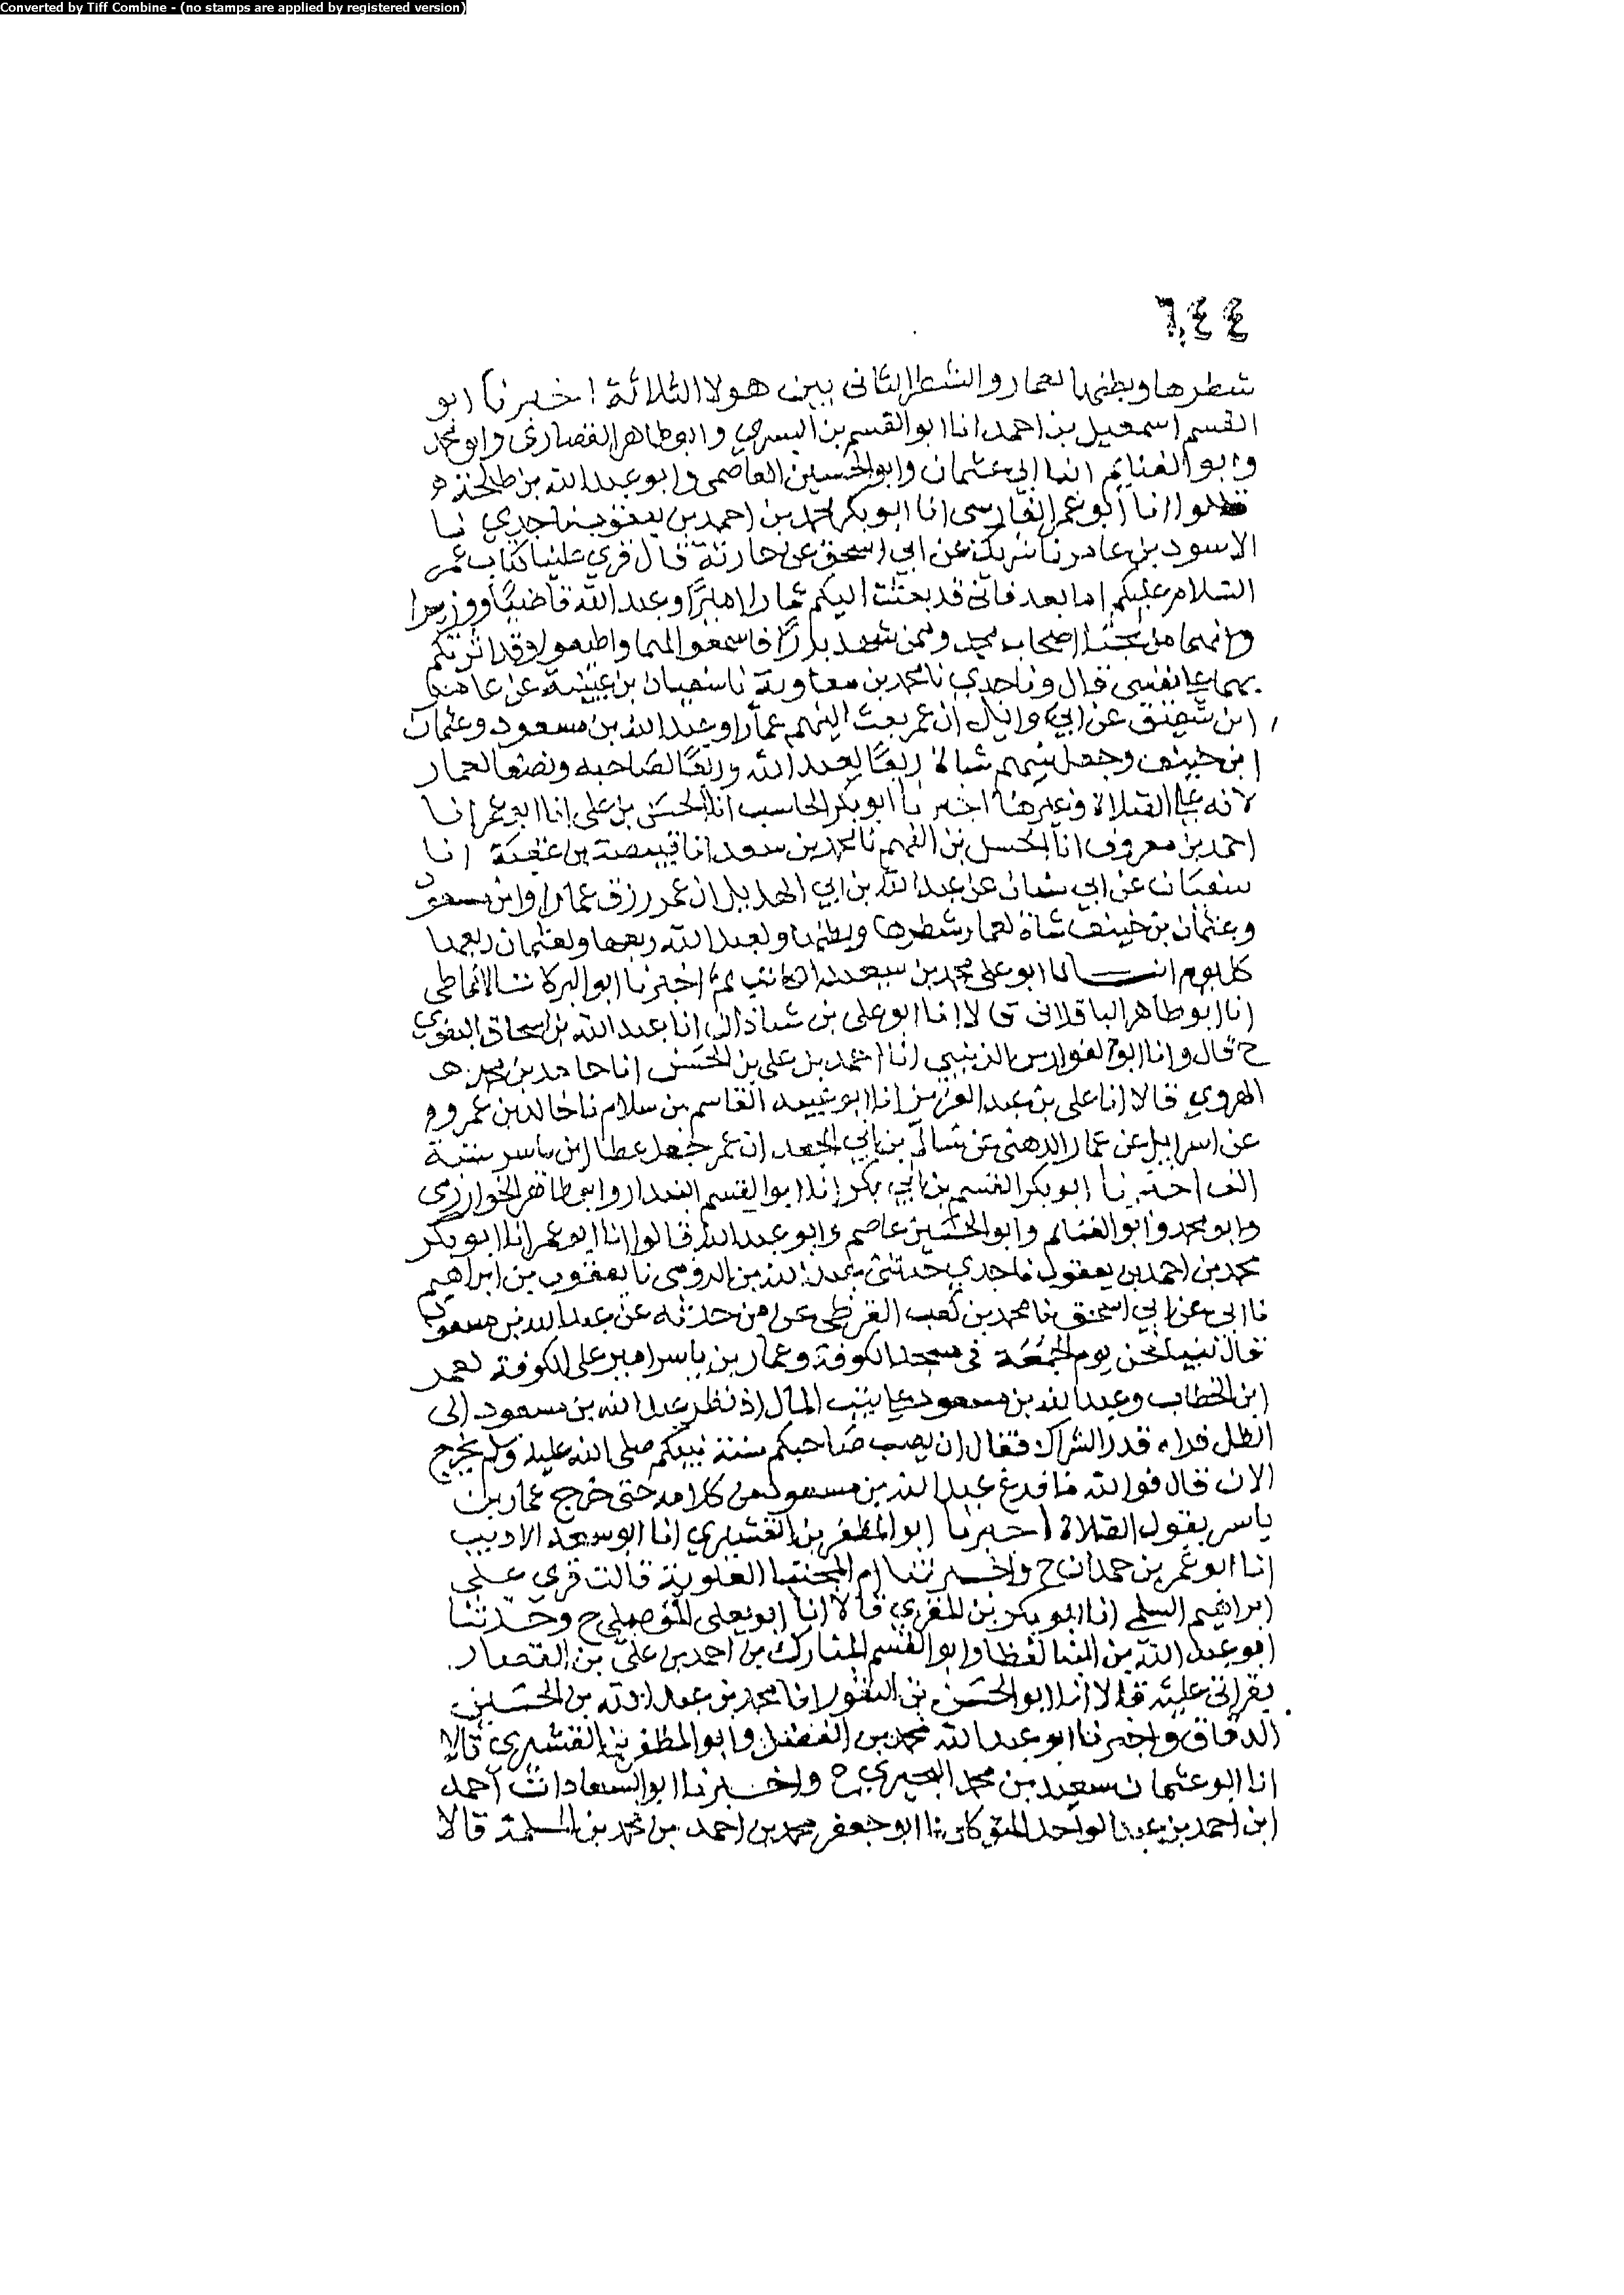 Converted by Tiff Combine - (no stamps are applied by registered version)
٦٤٤
شطرها وبطنها لعمار والشطر الثاني بين هولا الثلاثة اخبرنا ابو
القسم اسمعيل بن احمد انا ابو القسم بن البسري وابو طاهر القصاري وابو محمد
وابو الغنايم ابنا ابي عثمان وابو الحسين العاصمي وابو عبد الله بن طلحة
قالوا انا ابو عمر الفارسي انا ابو بكر محمد بن احمد بن يعقوب نا جدي نا
الاسود بن عامر نا شريك عن ابي اسحق عن حارثة قال قري علينا كتاب عمر
السلام عليكم اما بعد فاني قد بعثت اليكم عمارا اميرا وعبد الله قاضيا ووزيرا
وانهما من نجبا اصحاب محمد وممن شهد بدرا فاسمعوا لهما واطيعوا وقد اثرتكم
بهما على نفسي قال ونا جدي نا محمد بن معاوية نا سفيان بن عيينة عن عامر
ابن شقيق عن ابي وايل ان عمر بعث اليهم عمارا وعبد الله بن مسعود وعثمان
ابن حنيف وجعل بينهم شاة ربعا لعبد الله وربعا لصاحبه ونصفا لعمار
لانه على الصلاة وغيرها اخبرنا ابو بكر الحاسب انا الحسن بن علي انا ابو عمر انا
احمد بن معروف انا الحسين بن الفهم نا محمد بن سعد انا قبيصة بن عقبة انا
سفيان عن ابي سنان عن عبد الله بن ابي الهذيل ان عمر رزق عمارا وابن مسعود
وعثمان بن حنيف شاة لعمار شطرها وبطنها ولعبد الله ربعها ولعثمان ربعها
كل يوم انبانا ابو علي محمد بن سعيد بن نبهان ثم اخبرنا ابو البركات الانماطي
انا ابو طاهر الباقلاني قالا انا ابو علي بن شاذان انا عبد الله بن اسحاق البغوي
ح قال وانا ابو الفوارس الزينبي انا احمد بن علي بن الحسن انا حامد بن محمد
الهروي قالا انا علي بن عبد العزيز انا ابو عبيد القاسم بن سلام نا خالد بن عمرو
عن اسراييل عن عمار الدهني عن سالم بن ابي الجعد ان عمر جعل عطا ابن ياسر ستة
الف اخبرنا ابو بكر القسم بن ابي بكر انا ابو القسم البندار وابو طاهر الخوارزمي
وابو محمد وابو الغنايم وابو الحسين عاصم وابو عبد الله قالوا انا ابو عمر انا ابو بكر
محمد بن احمد بن يعقوب نا جدي حدثني عبد الله بن الرومي نا يعقوب بن ابراهيم
نا ابي عن ابي اسحق نا محمد بن كعب القرظي عمن حدثه عن عبد الله بن مسعود
قال بينما نحن يوم الجمعة في مسجد الكوفة وعمار بن ياسر امير على الكوفة لعمر
ابن الخطاب وعبد الله بن مسعود على بيت المال اذ نظر عبد الله بن مسعود الى
الظل فراه قدر الشراك فقال ان يصب صاحبكم سنة نبيكم صلى الله عليه وسلم يخرج
الان قال فوالله ما فرغ عبد الله بن مسعود من كلامه حتى خرج عمار بن
ياسر يقول الصلاة اخبرنا ابو المظفر بن القشيري انا ابو سعد الاديب
انا ابو عمر بن حمدان ح واخبرتنا ام المجتبا العلوية قالت قري على
ابراهيم السلمي انا ابو بكر بن المقري قالا انا ابو يعلى الموصلي ح وحدثنا
ابو عبد الله بن البنا لفظا وابو القسم المبارك بن احمد بن علي بن القصار
بقراتي عليه قالا انا ابو الحسين بن النقور انا محمد بن عبد الله بن الحسين
الدقاق واخبرنا ابو عبد الله محمد بن الفضل وابو المظفر بن القشيري قالا
انا ابو عثمان سعيد بن محمد البحيري ح واخبرنا ابو السعادات احمد
ابن احمد بن عبد الواحد المتوكلي انا ابو جعفر محمد بن احمد بن محمد بن المسلمة قالا